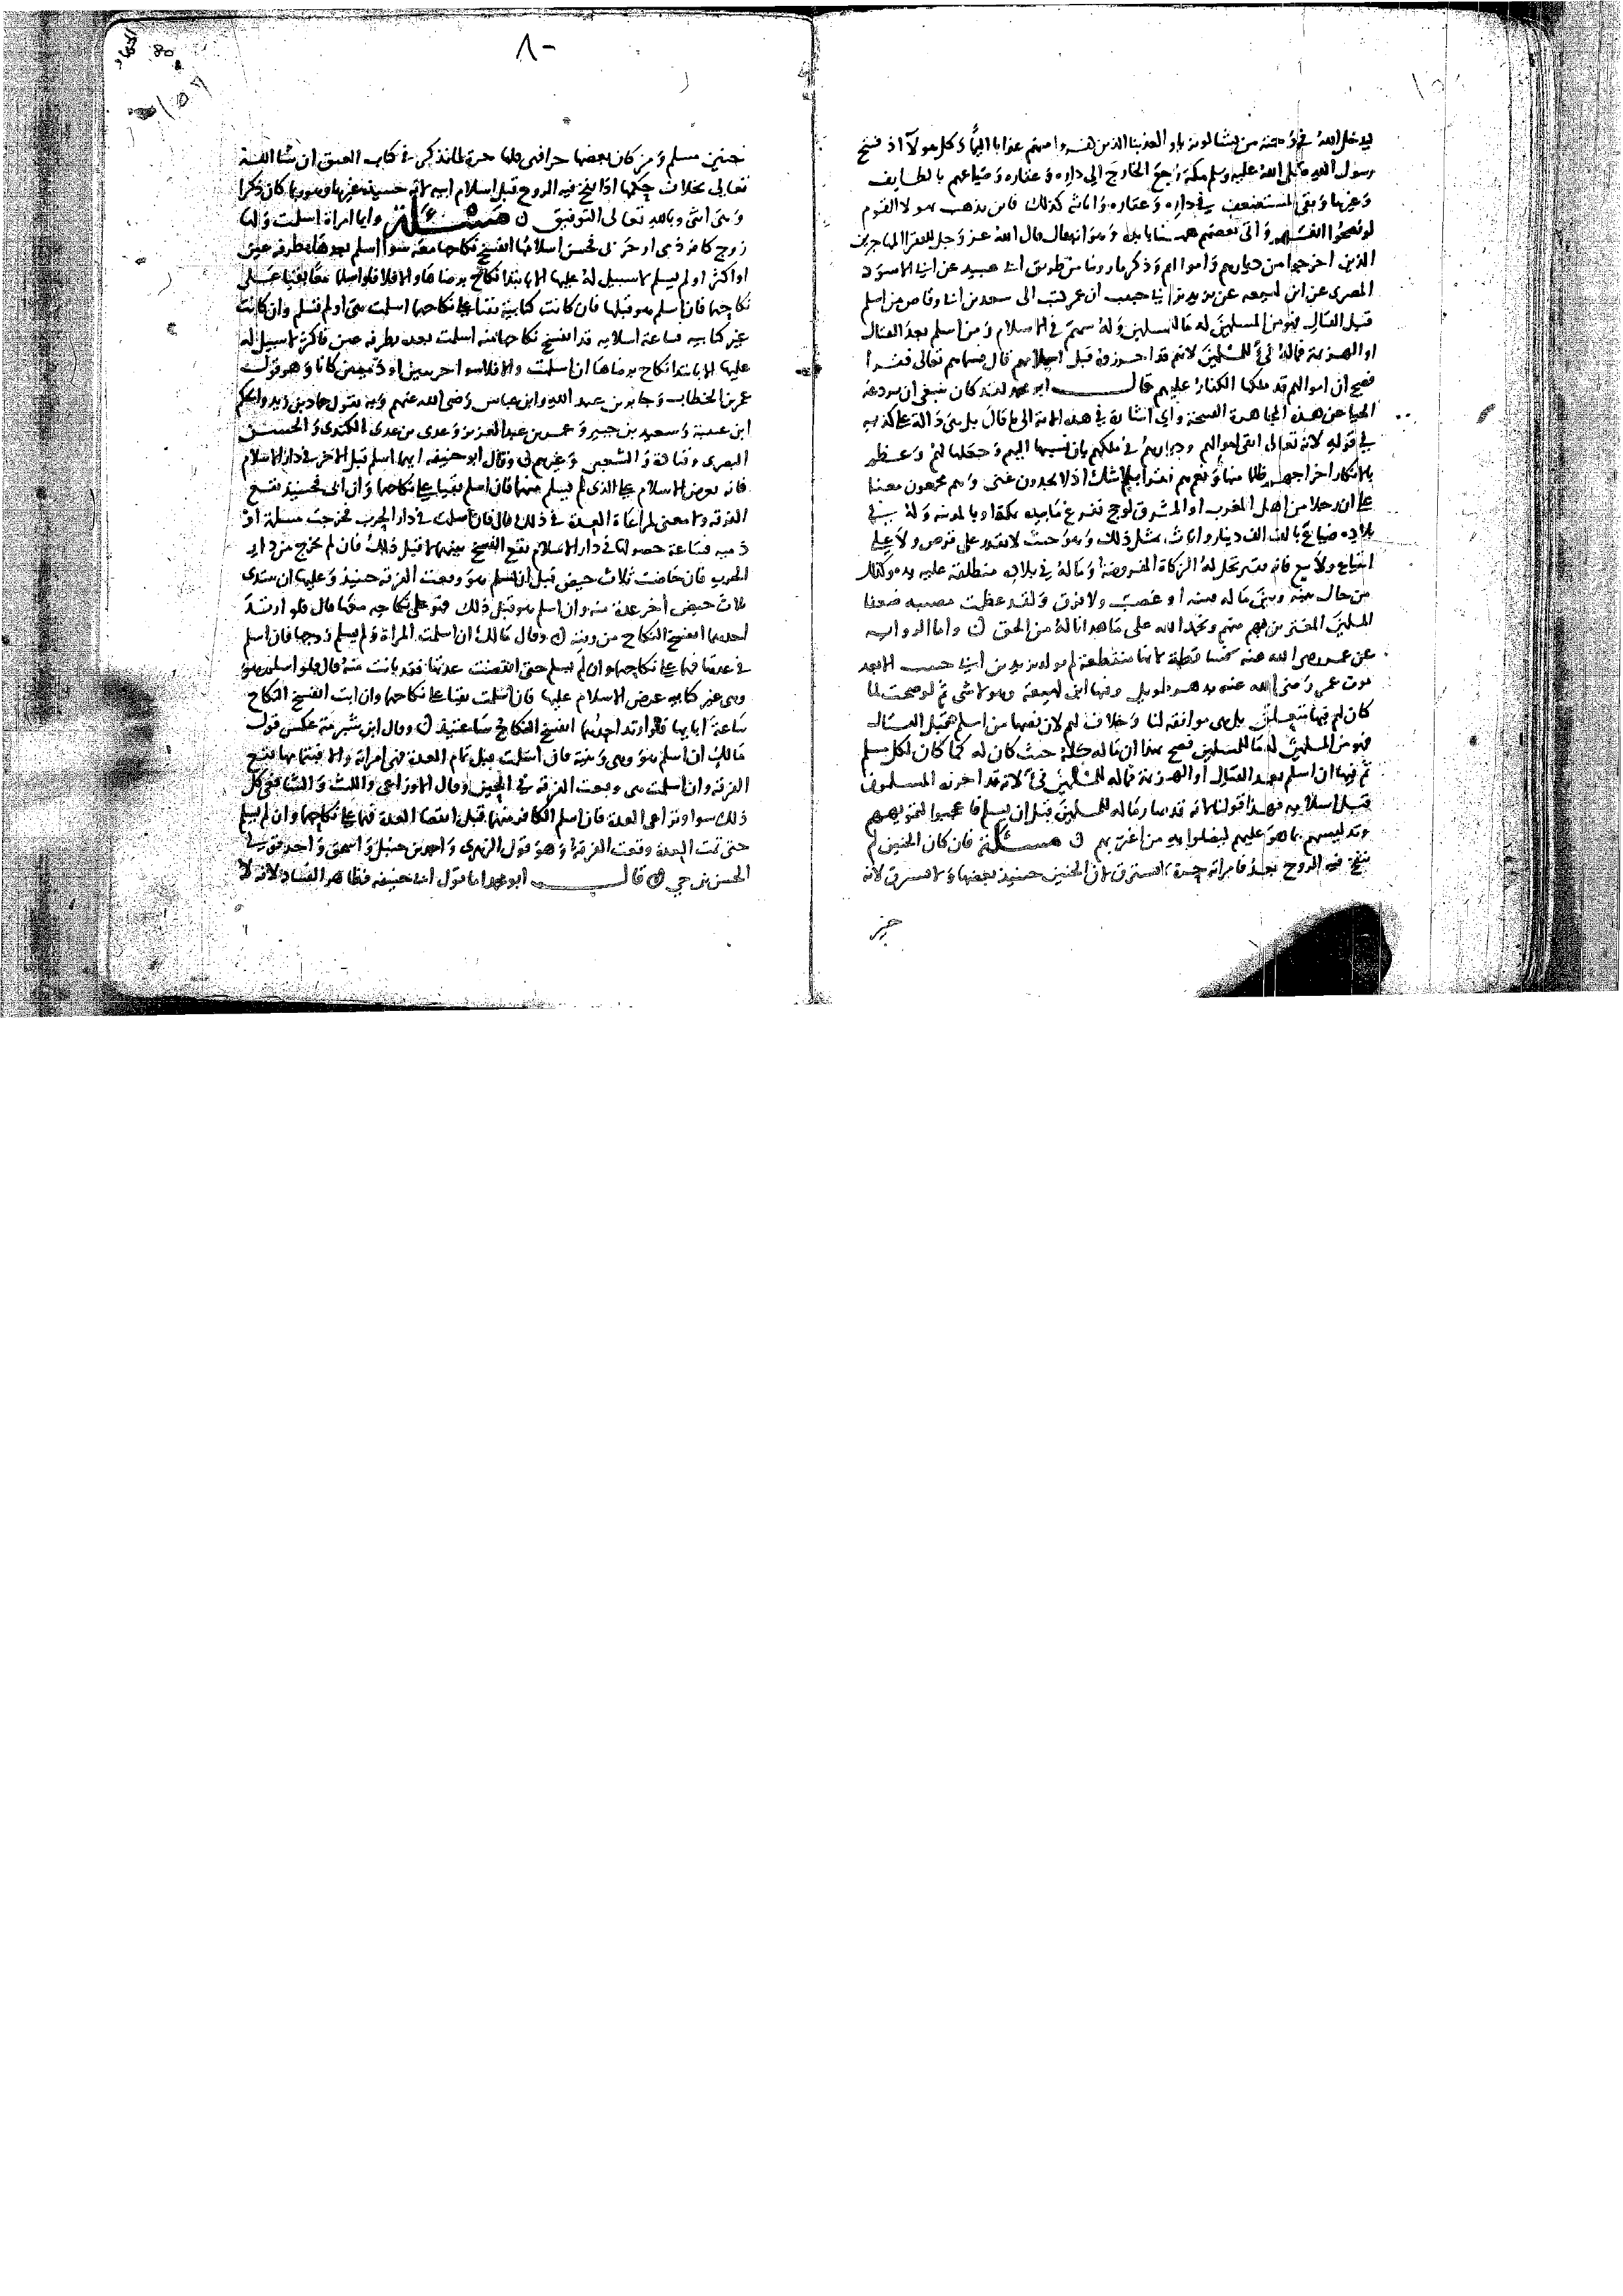 ليدخل الله في رحمته من يشا لو تزيلوا لعذبنا الذين كفروا منهم عذابا اليما وكل هولا اذ فتح
رسول الله صلى الله عليه وسلم مكة رجع الخارج الى داره وعقاره وضياعهم بالطايف
وغيرها وبقي المستضعف في داره وعقاره واثاثه كذلك فاين يذهب هولا القوم
لو نصحوا انفسهم واتى بعضهم هنا وهو انه قال قال الله عز وجل للفقرا المهاجرين
الذين اخرجوا من ديارهم واموالهم وذكر ما روينا من طريق ابي عبيد عن ابي الاسود
المصري عن ابن لهيعة عن يزيد بن ابي حبيب ان عمر كتب الى سعد بن ابي وقاص من اسلم
قبل القتال فهو من المسلمين له ما للمسلمين وله سهم في الاسلام ومن اسلم بعد القتال
او الهزيمة فماله فئ للمسلمين لانهم قد احرزوه قبل اسلامه قال فسماهم تعالى فقرا
فصح ان اموالهم قد ملكها الكفار عليهم قال ابو محمد لقد كان ينبغي ان يردعه
الحيا عن هذه المجاهرة القبيحة واي اشارة في هذه الاية الى ما قال بل هي دالة على كذبه
في قوله لانه تعالى ابقى اموالهم وديارهم في ملكهم بان نسبها اليهم وجعلها لهم وعظم
بالانكار اخراجهم ظلما منها ونعم هم فقرا بلا شك اذ لا يجدون غنى وهم مجمعون معنا
على ان رجلا من اهل المغرب او المشرق لو حج ففرغ ما بيده بمكة او بالمدينة وله في
بلاده ضياع بالف الف دينار واثاث بمثل ذلك وهو حيث لا يقدر على قرض ولا على
ابتياع ولا بيع فانه فقير تحل له الزكاة المفروضة وماله في بلاده منطلقة عليه يده وكذلك
من حال بينه وبين ماله فتنة او غصب ولا فرق ولقد عظمت مصيبة ضعفا
المسلمين المغترين بهم منهم ونحمد الله على ما هدانا له من الحق واما الرواية
عن عمر رضي الله عنه فساقطة لانها منقطعة لم يولد يزيد بن ابي حبيب الا بعد
موت عمر رضي الله عنه بدهر طويل وفيها ابن لهيعة وهو لا شي ثم لو صحت لما
كان لهم فيها متعلق بل هي موافقة لنا وخلاف لهم لان نصها من اسلم قبل القتال
فهو من المسلمين له ما للمسلمين فصح بهذا ان ماله كله حيث كان له كما كان لكل مسلم
ثم فيها ان اسلم بعد القتال او الهزيمة فماله للمسلمين فئ لانه قد احرزه المسلمون
قبل اسلامه فهذا قولنا لانه قد صار ماله للمسلمين قبل ان يسلم فاعجبوا لتمويههم
وتدليسهم بما هو عليهم ليضلوا به من اغتر بهم مسئلة فان كان الجنين لم
ينفخ فيه الروح بعد فامراته حرة لا تسترق لان الجنين حينئذ بعضها ولا يسترق لانه
جنين
٨٠
جنين مسلم ومن كان بعضها حرا فهي كلها حرة لما نذكر في كتاب العتق ان شا الله
تعالى بخلاف حكمها اذا نفخ فيه الروح قبل اسلام ابيه لانه حينئذ غيرها وهو ربما كان ذكرا
وهي انثى وبالله تعالى التوفيق مسئلة وايما امراة اسلمت ولها
زوج كافر ذمي او حربي فحين اسلامها انفسخ نكاحها منه سوا اسلم بعدها بطرفة عين
او اكثر او لم يسلم لا سبيل له عليها الا بابتدا نكاح برضاها والا فلا فلو اسلما معا بقيا على
نكاحهما فان اسلم هو قبلها فان كانت كتابية بقيا على نكاحهما اسلمت هي او لم تسلم وان كانت
غير كتابية فساعة اسلامه قد انفسخ نكاحها منه اسلمت بعده بطرفة عين فاكثر لا سبيل له
عليها الا بابتدا نكاح برضاها ان اسلمت والا فلا سوا حربيين او ذميين كانا وهو قول
عمر بن الخطاب وجابر بن عبد الله وابن عباس رضي الله عنهم وبه يقول حماد بن زيد والحكم
ابن عتيبة وسعيد بن جبير وعمر بن عبد العزيز وعدي بن عدي الكندي والحسن
البصري وقتادة والشعبي وغيرهم وقال ابو حنيفة ايهما اسلم قبل الاخر في دار الاسلام
فانه يعرض الاسلام على الذي لم يسلم منهما فان اسلم بقيا على نكاحهما وان ابى فحينئذ تقع
الفرقة ولا معنى لمراعاة العدة في ذلك قال فان اسلمت في دار الحرب فخرجت مسلمة او
ذمية فساعة حصولها في دار الاسلام يقع الفسخ بينهما لا قبل ذلك فان لم تخرج من دار
الحرب فان حاضت ثلاث حيض قبل ان يسلم هو وقعت الفرقة حينئذ وعليها ان تبتدي
ثلاث حيض اخر عدة منه وان اسلم هو قبل ذلك فهو على نكاحه معها قال فلو ارتد
احدهما انفسخ النكاح من وقته وقال مالك ان اسلمت المراة ولم يسلم زوجها فان اسلم
في عدتها فهما على نكاحهما وان لم يسلم حتى انقضت عدتها فقد بانت منه قال فلو اسلم هو
وهي غير كتابية عرض الاسلام عليها فان اسلمت بقيا على نكاحهما وان ابت انفسخ النكاح
ساعة ابايها فلو ارتد احدهما انفسخ النكاح ساعتئذ وقال ابن شبرمة عكس قول
مالك ان اسلم هو وهي وثنية فان اسلمت قبل تمام العدة فهي امراته والا فبتمامها تقع
الفرقة وان اسلمت هي وقعت الفرقة في الحين وقال الاوزاعي والليث والشافعي كل
ذلك سوا وتراعى العدة فان اسلم الكافر منهما قبل انقضا العدة فهما على نكاحهما وان لم يسلم
حتى تمت العدة وقعت الفرقة وهو قول الزهري واحمد بن حنبل واسحق واحد قولي
الحسن بن حي قال ابو محمد اما قول ابي حنيفة فظاهر الفساد لانه لا